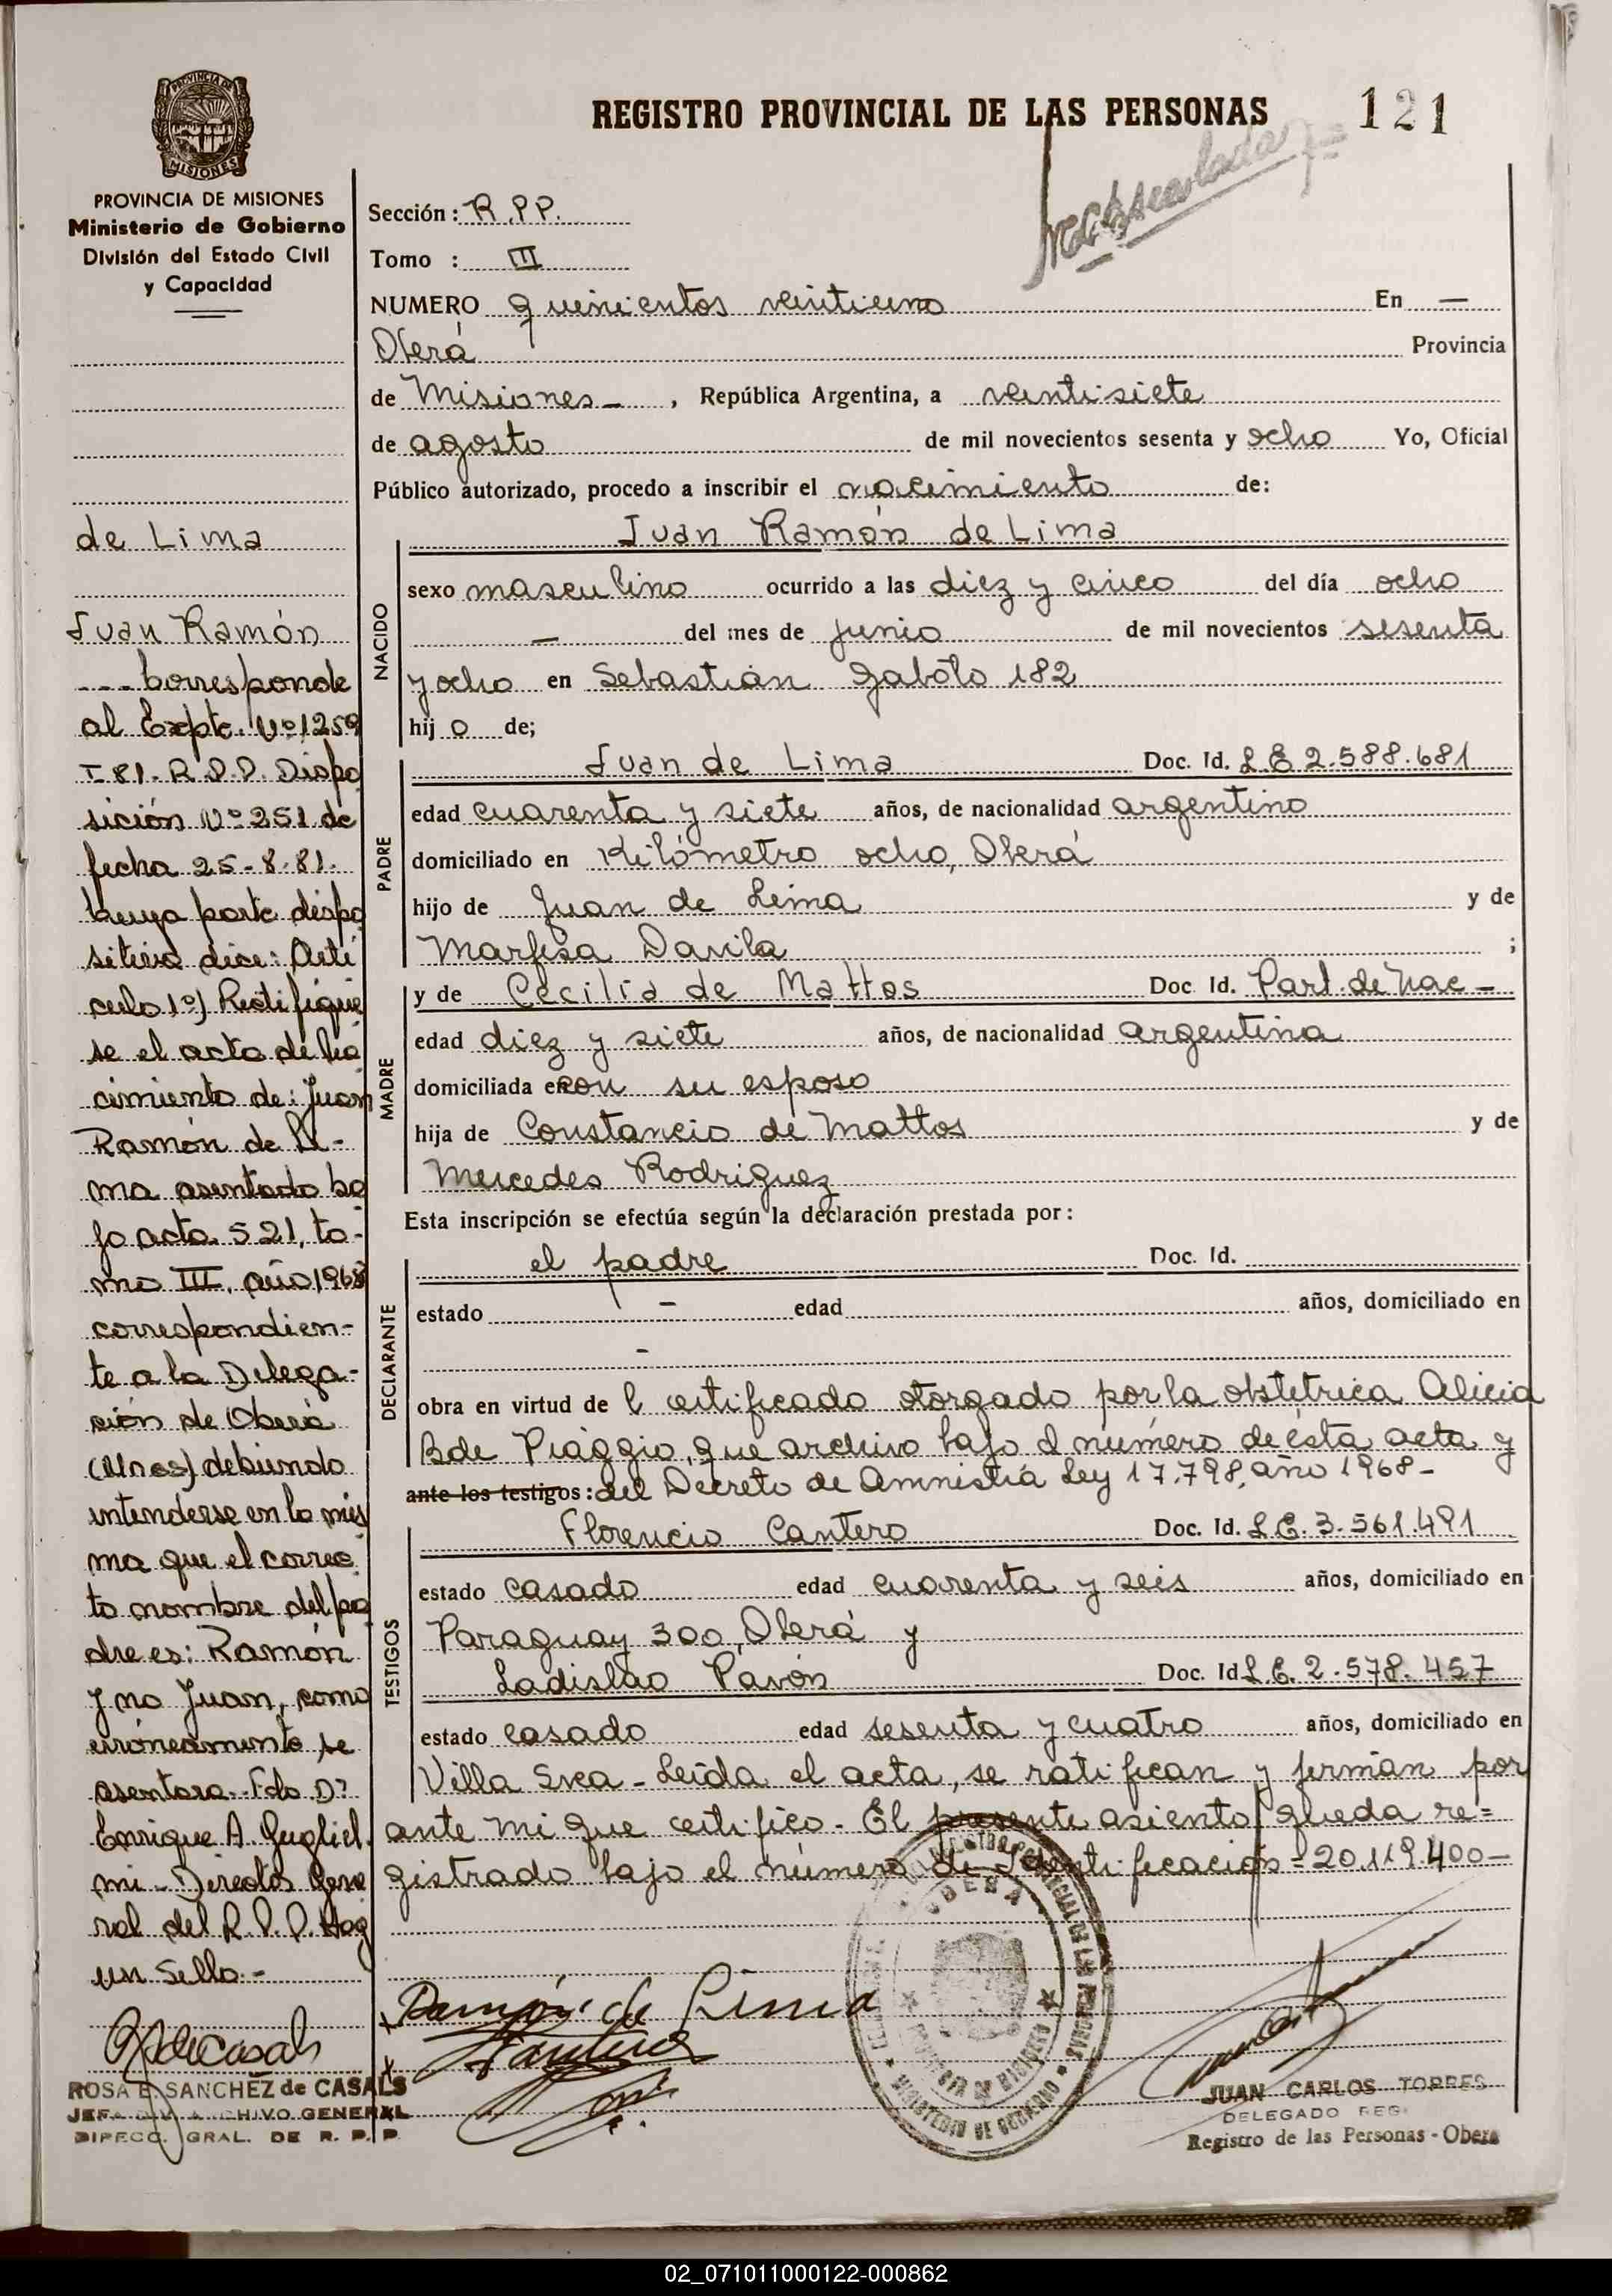 REGISTRO PROVINCIAL DE LAS PERSONAS
121
PROVINCIA DE MISIONES
Ministerio de Gobierno
División del Estado Civil
y Capacidad
Sección: R.P.P.
Tomo : III
NUMERO quinientos veintiuno En —
Oberá Provincia
de Misiones — , República Argentina, a veintisiete
de agosto de mil novecientos sesenta y ocho Yo, Oficial
Público autorizado, procedo a inscribir el nacimiento de:
NACIDO
Juan Ramón de Lima
sexo masculino ocurrido a las diez y cinco del día ocho
— del mes de junio de mil novecientos sesenta
y ocho en Sebastián Gaboto 182
hij o de;
PADRE
Juan de Lima Doc. Id. L.E 2.588.681
edad cuarenta y siete años, de nacionalidad argentino
domiciliado en Kilómetro ocho, Oberá
hijo de Juan de Lima y de
Marfisa Davila ;
MADRE
y de Cecilia de Mattos Doc. Id. Part. de Nac —
edad diez y siete años, de nacionalidad argentina
domiciliada en con su esposo
hija de Constancio de Mattos y de
Mercedes Rodriguez
Esta inscripción se efectúa según la declaración prestada por:
DECLARANTE
el padre Doc. Id.
estado - edad años, domiciliado en
-
obra en virtud de l certificado otorgado por la obstétrica Alicia
B de Piaggio, que archivo bajo el número de ésta acta y
ante los testigos: del Decreto de Amnistía Ley 17.798, año 1968 -
TESTIGOS
Florencio Cantero Doc. Id. L.E. 3.561.491
estado casado edad cuarenta y seis años, domiciliado en
Paraguay 300, Oberá y
Ladislao Pavón Doc. Id L.E. 2.578.457
estado casado edad sesenta y cuatro años, domiciliado en
Villa Svea - Leída el acta, se ratifican y firman por
ante mi que certifico - El presente asiento queda re=
gistrado bajo el número de Identificación = 20.119.400 —
de Lima
Juan Ramón
--- Corresponde
al Expte. Nº 1259
I 81 - R.P.P. Dispo
sición Nº 251 de
fecha 25-8-81.
cuya parte dispo
sitiva dice: Artí
culo 1º) Rectifíque
se el acta de na
cimiento de: Juan
Ramón de Li-
ma asentado ba
jo acta 521, to-
mo III, año 1968
correspondien-
te a la Delega-
ción de Oberá
debiendo
entenderse en la mis
ma que el correc
to nombre del pa
dre es: Ramón
y no Juan, como
erróneamente se
asentara. Fdo Dº
Enrique A. Gugliel
mi - Director Gene
ral del R.P.P. Hay
un Sello.-
Ramón de Lima
ROSA E. SANCHEZ de CASALS
JEFA DIV. ARCHIVO GENERAL
DIRECC. GRAL. DE R. P. P.
OBERA
MINISTERIO DE GOBIERNO
JUAN CARLOS TORRES
DELEGADO REG.
Registro de las Personas - Obera
02_071011000122-000862